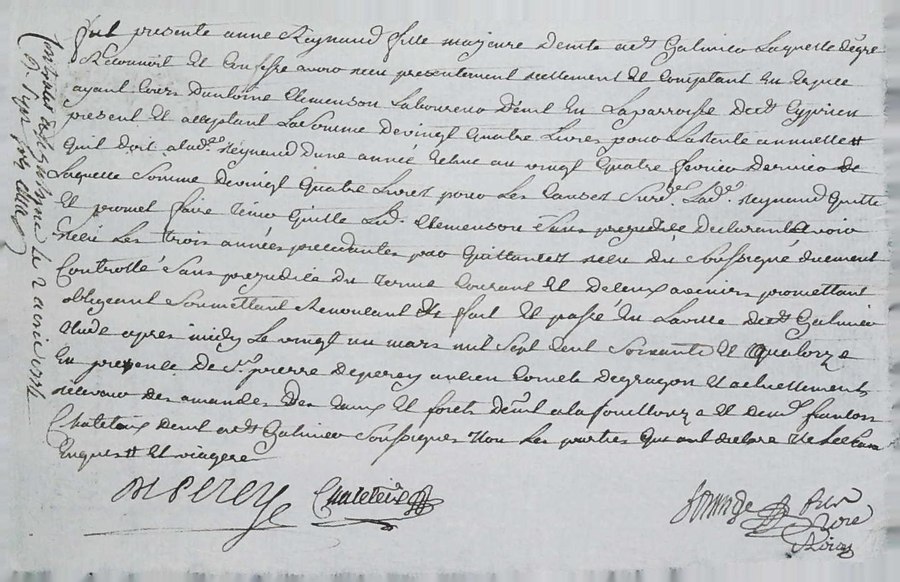 fut presente anne Reynaud fille majeure demte a st Galmier Laquelle de gre
Reconnoit et Confesse avoir reçu presentement reellement et comptant en espece
ayant Cours d'antoine Clemenson Laboureur demt en La parroisse de st Cyprien
present et acceptant La Somme de vingt quatre Livres pour La rente annuelle #
qu'il doit a lad. Reynaud d'une année echue au vingt quatre fevrier dernier de
Laquelle Somme de vingt quatre Livres pour Les Causes Susd. Lad. Reynaud quitte
et promet faire tenir quitte Led. Clemenson Sans prejudice declarant avoir
reçu Les trois années precedantes par quittances reçu du Soussigné duement
Controllé Sans prejudice du terme Courant et de Ceux avenirs promettant
obligeant Soumettant Renonçant &c fait et passé en La ville de st Galmier
Etude apres midy Le vingt un mars mil Sept Cent Soixante et quatorze
En presence de Sr pierre deperey ancien Cornete de dragon et actuellement
receveur des amandes des Eaux et forets demt a la fouillouze et de mr françois
Chateleux demt a st Galmier Soussignes Non Les parties qui ont declare ne Le scavoir
Enquis # et viagere
Deperey
Chateleux
pour
not re
Roial
Controllé a st galmier le 2 avril 1774